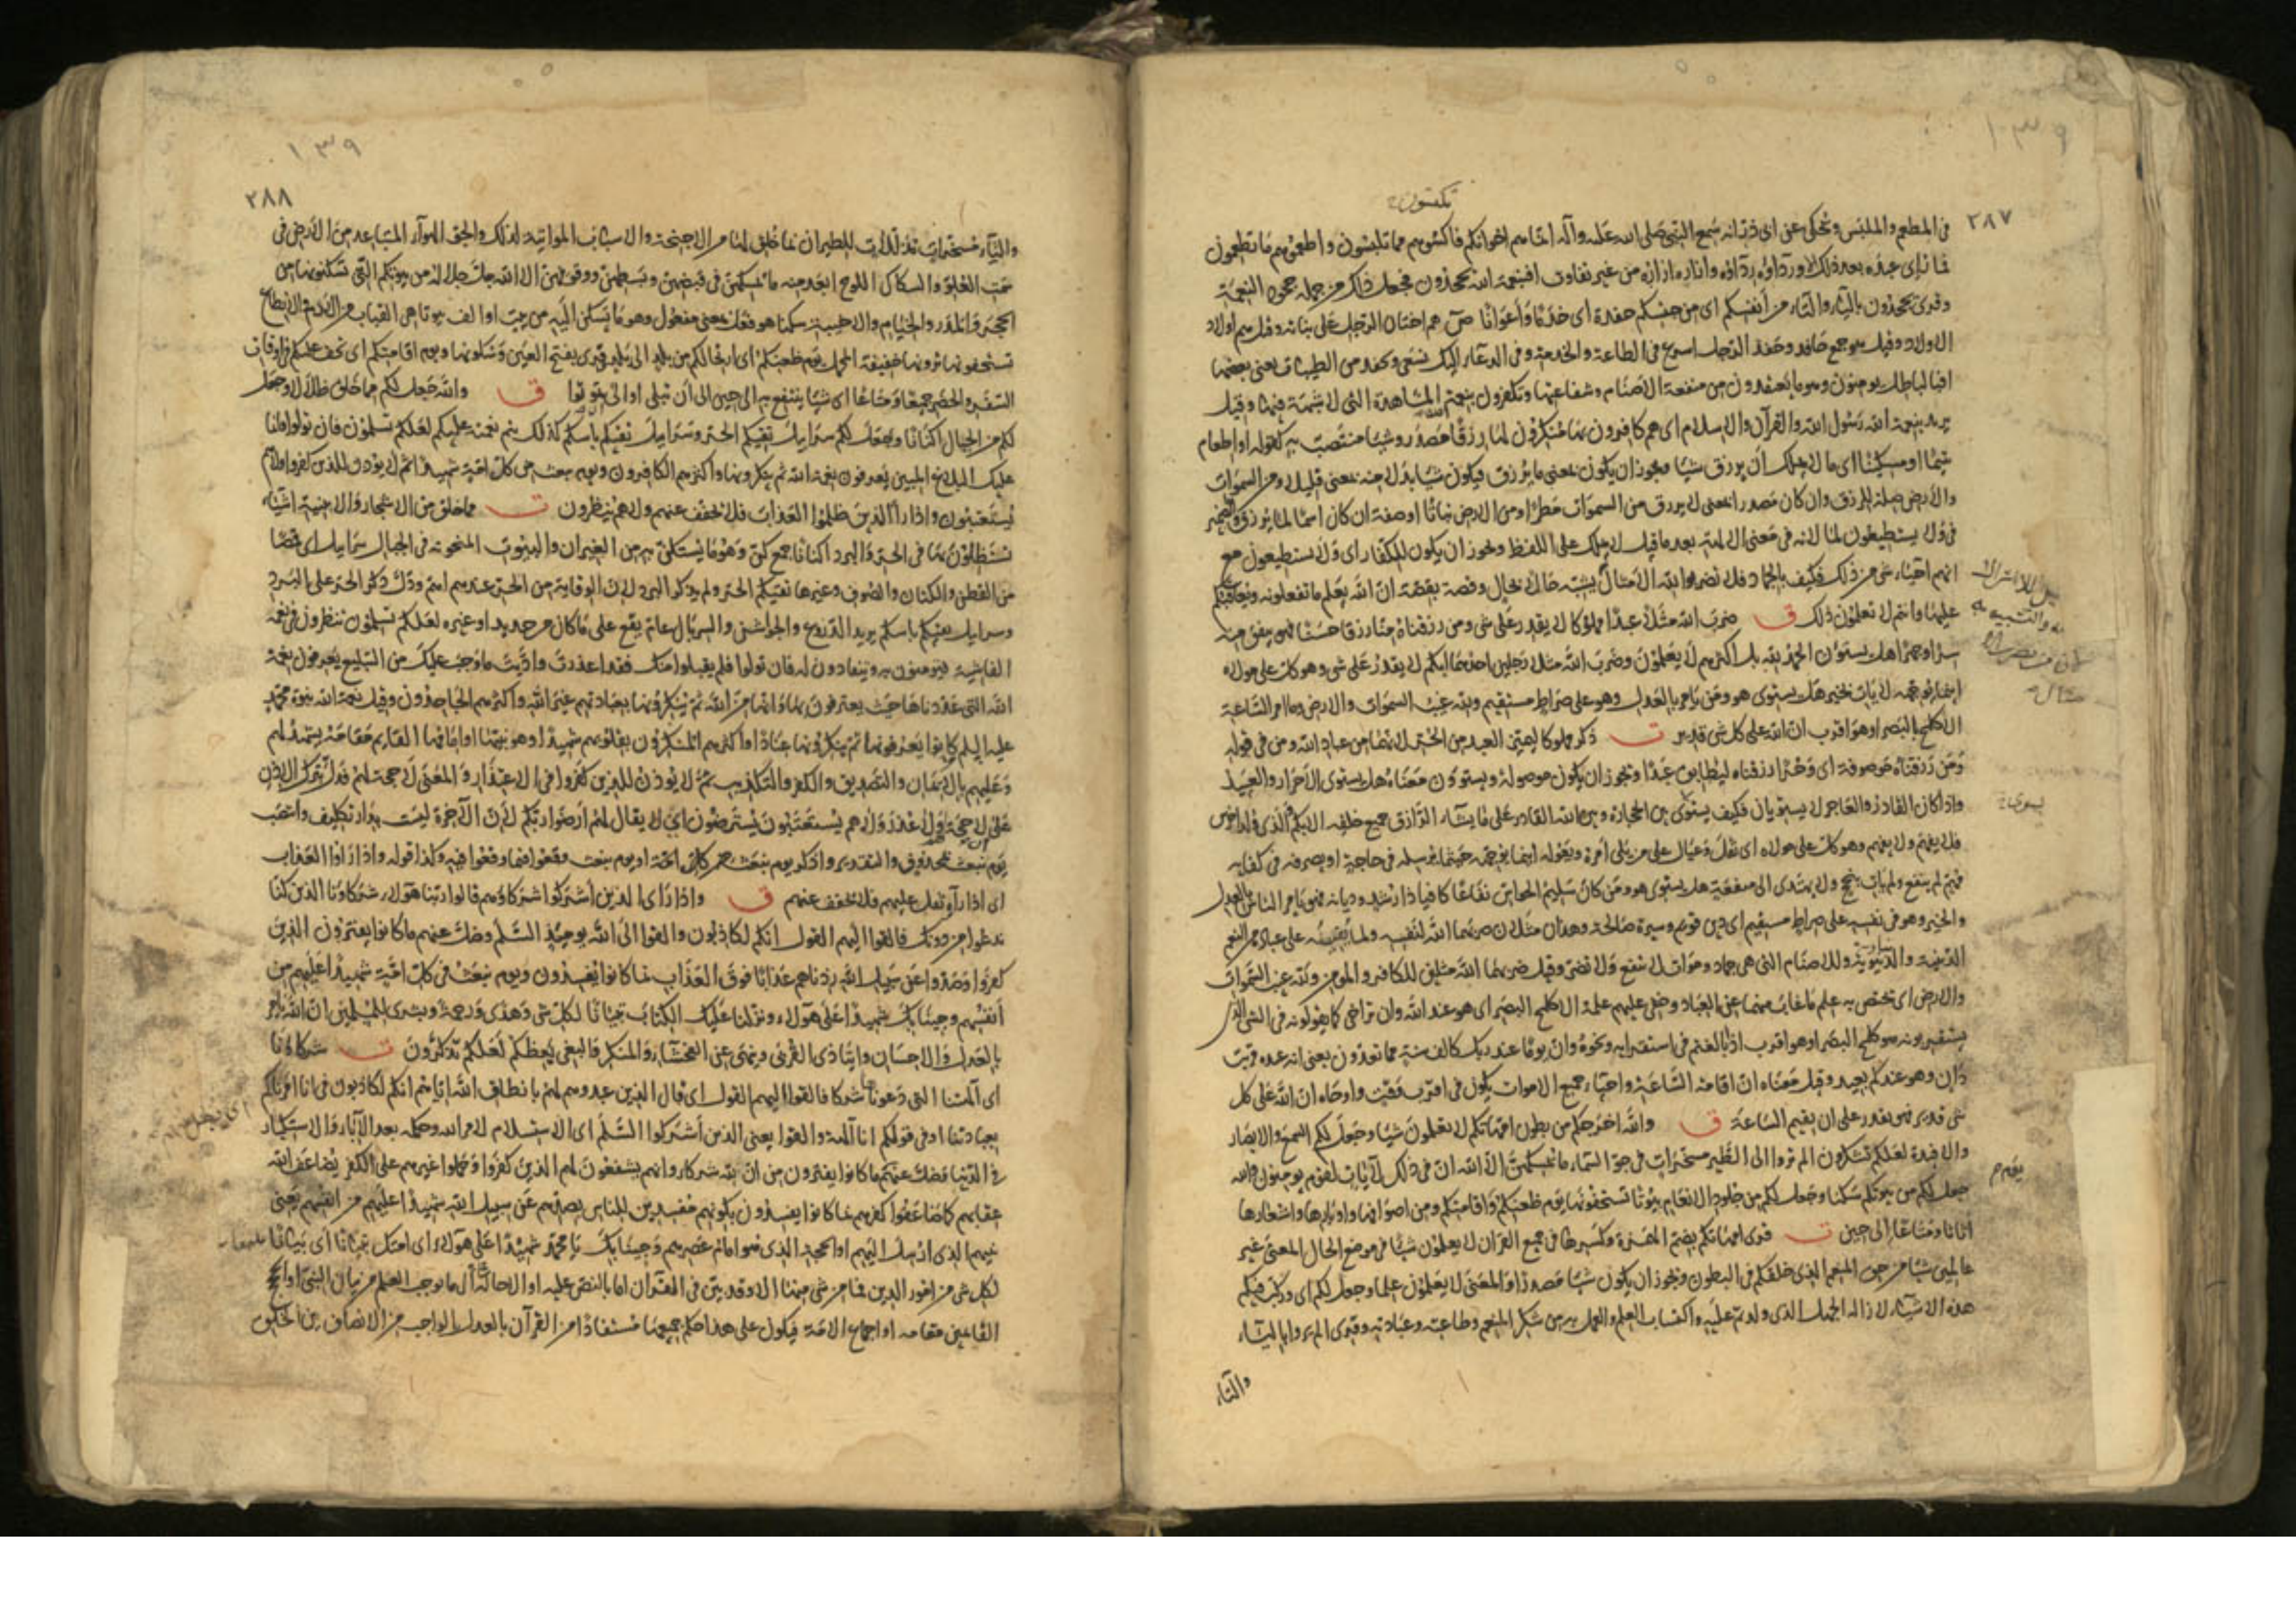 ١٣٩
٢٨٧
تكسون
فى المطعم والملبس ويحكى عن ابى ذر انه سمع النبى صلى الله عليه وآله انما هم اخوانكم فاكسوهم مما تلبسون واطعموهم مما تطعمون
فما رُاى عبده بعد ذلك الا ورداؤه رداؤه وازاره ازاره من غير تفاوت افبنعمة الله يجحدون فجعل ذلك من جملة جحود النعمة
وقرئ تجحدون بالياء والتاء من أنفسكم اى من جنسكم حفدة اى خدمًا وأعوانًا ص هم اختان الرجل على بناته وقيل هم اولاد
الاولاد وقيل هو جمع حافد وحفد الرجل اسرع فى الطاعة والخدمة وفى الدعاء اليك نسعى ونحفد من الطيبات يعنى بعضها
افبالباطل يومنون وهو ما يعتقدون من منفعة الاصنام وشفاعتها وتكفرون بنعم الله المشاهدة التى لا شبهة فيها وقيل
يريد بنعمة الله رسول الله والقرآن والاسلام اى هم كافرون بها منكرون لها رزقًا مصدر وشيئا منتصب به كقوله او اطعام
يتيمًا او مسكينًا اى ما لا يملك ان يرزق شيئا ويجوز ان يكون بمعنى ما يرزق فيكون شيئا بدلا منه بمعنى قليلا ومن السموات
والارض صلة للرزق وان كان مصدرا بمعنى لا يرزق من السموات مطرًا ومن الارض نباتًا او صفة ان كان اسمًا لما يرزق والضمير
فى ولا يستطيعون لما لانه فى معنى الالهة بعد ما قيل لا يملك على اللفظ ويجوز ان يكون للكفار اى ولا يستطيعون مع
انهم احياء شى من ذلك فكيف بالجماد فلا تضربوا لله الامثال يشبه حالا بحال وقصة بقصة ان الله يعلم ما تفعلونه ويعاقبكم
عليها وانتم لا تعلمون ذلك ق ضرب الله مثلا عبدًا مملوكا لا يقدر على شى ومن رزقناه منا رزقا حسنًا فهو ينفق منه
سرًا وجهرًا هل يستوون الحمد لله بل اكثرهم لا يعلمون وضرب الله مثلا رجلين احدهما ابكم لا يقدر على شى وهو كل على مولاه
اينما يوجهه لا يات بخير هل يستوى هو ومن يامر بالعدل وهو على صراط مستقيم ولله غيب السموات والارض وما امر الساعة
الا كلمح البصر او هو اقرب ان الله على كل شى قدير ت ذكر مملوكا ليميز العبد من الحر لانهما من عباد الله ومن فى قوله
ومن رزقناه موصوفة اى وحرًا رزقناه ليطابق عبدًا ويجوز ان يكون موصولة ويستوون معناه هل يستوى الاحرار والعبيد
واذا كان القادر والعاجز لا يستويان فكيف يستوى بين الحجارة وبين الله القادر على ما يشاء الرازق جميع خلقه الابكم الذى ولد اخرس
فلا يفهم ولا يفهم وهو كل على مولاه اى ثقل وعيال على من يلى امره ويعوله اينما يوجهه حيثما يرسله فى حاجة او يصرفه فى كفاية
مهم لم ينفع ولم يات بنجح ولا يهتدى الى منفعة هل يستوى هو ومن كان سليم الحواس نفاعًا كافيا ذا رشد وديانة فهو يامر الناس بالعدل
والخير وهو فى نفسه على صراط مستقيم اى دين قويم وسيرة صالحة وهذان مثلان ضربهما الله لنفسه ولما يفيضه على عباده من النعم
الدينية والدنيوية وللاصنام التى هى جماد وموات لا تنفع ولا تضر وقيل ضربهما الله مثلين للكافر والمومن ولله غيب السموات
والارض اى يختص به علم ما غاب عنهما عن العباد وخفى عليهم علمه الا كلمح البصر اى هو عند الله وان تراخى كما يقولونه فى الشى الذى
يستقربونه هو كلمح البصر او هو اقرب اذا بالغتم فى استقرابه ونحوه وان يومًا عند ربك كالف سنة مما تعدون يعنى انه عنده قريب
دان وهو عندكم بعيد وقيل معناه ان اقامة الساعة واحياء جميع الاموات يكون فى اقرب وقت واوحاه ان الله على كل
شى قدير فهو يقدر على ان يقيم الساعة ق والله اخرجكم من بطون امهاتكم لا تعلمون شيئا وجعل لكم السمع والابصار
والافئدة لعلكم تشكرون الم تروا الى الطير مسخرات فى جو السماء ما يمسكهن الا الله ان فى ذلك لآيات لقوم يومنون والله
جعل لكم من بيوتكم سكنا وجعل لكم من جلود الانعام بيوتًا تستخفونها يوم ظعنكم ويوم اقامتكم ومن اصوافها واوبارها واشعارها
اثاثا ومتاعًا الى حين ت قرئ امهاتكم بضم الهمزة وكسرها فى جميع القرآن لا يعلمون شيئا فى موضع الحال المعنى غير
عالمين شيئا من حق المنعم الذى خلقكم فى البطون ويجوز ان يكون شيئا مصدرًا والمعنى لا يعلمون علما وجعل لكم اى وركب فيكم
هذه الاشياء لازالة الجهل الذى ولدتم عليه واكتساب العلم والعمل به من شكر المنعم وطاعته وعبادته وقرئ الم يروا بالياء
والتاء
يستوى
يوم
١٣٩
٢٨٨
والتاء مسخرات مذللات للطيران بما خلق لها من الاجنحة والاسباب المواتية لذلك والجو الهواء المتباعد من الارض فى
سمت العلو والسكاك اللوح ابعد منه ما يمسكهن فى قبضهن وبسطهن ووقوفهن الا الله جل جلاله من بيوتكم التى تسكنونها من
الحجر والمدر والخيام والاخبية سكنا هو فعل بمعنى مفعول وهو ما يسكن اليه من بيت او الف بيوتا هى القباب من الادم والانطاع
تستخفونها ترونها خفيفة المحمل يوم ظعنكم اى ارتحالكم من بلد الى بلد قرئ بفتح العين وسكونها ويوم اقامتكم اى يخف عليكم فى اوقات
السفر والحضر جميعًا ومتاعًا اى شيئا ينتفع به الى حين الى ان تبلى او الى ان تموتوا ق والله جعل لكم مما خلق ظلالا وجعل
لكم من الجبال اكنانا وجعل لكم سرابيل تقيكم الحر وسرابيل تقيكم باسكم كذلك يتم نعمته عليكم لعلكم تسلمون فان تولوا فانما
عليك البلاغ المبين يعرفون نعمة الله ثم ينكرونها واكثرهم الكافرون ويوم نبعث من كل امة شهيدًا ثم لا يوذن للذين كفروا ولا هم
يستعتبون واذا رأى الذين ظلموا العذاب فلا يخفف عنهم ولا هم ينظرون ت مما خلق من الاشجار والابنية اشياء
تستظلون بها فى الحر والبرد اكنانًا جمع كن وهو ما يستكن به من الغيران والبيوت المنحوتة فى الجبال سرابيل اى قمصا
من القطن والكتان والصوف وغيرها تقيكم الحر ولم يذكر البرد لان الوقاية من الحر عندهم اهم ودل ذكر الحر على البرد
وسرابيل تقيكم باسكم يريد الدروع والجواشن والسربال عام يقع على ما كان من حديد او غيره لعلكم تسلمون تنظرون فى نعمه
الفاشية فتومنون به وتنقادون له فان تولوا فلم يقبلوا منك فقد اعذرت واديت ما وجب عليك من التبليغ يعرفون نعمة
الله التى عددناها حيث يعترفون بها وانها من الله ثم ينكرونها بعبادتهم غير الله واكثرهم الجاحدون وقيل نعمة الله نبوة محمد
عليه السلم كانوا يعرفونها ثم ينكرونها عنادًا واكثرهم المنكرون بقلوبهم شهيدًا وهو نبيها او امامها القايم مقامه يشهد لهم
وعليهم بالايمان والتصديق والكفر والتكذيب ثم لا يوذن للذين كفروا فى الاعتذار والمعنى لا حجة لهم فدل بترك الاذن
على ان لا حجة لهم ولا عذر ولا هم يستعتبون يسترضون اى لا يقال لهم ارضوا ربكم لان الآخرة ليست بدار تكليف وانتصب
يوم نبعث بمحذوف والتقدير واذكر يوم نبعث من كل امة او يوم نبعث وقعوا فيما وقعوا فيه وكذا قوله واذا رأوا العذاب
اى اذا رأوه ثقل عليهم فلا يخفف عنهم ق واذا رأى الذين اشركوا شركاءهم قالوا ربنا هؤلاء شركاؤنا الذين كنا
ندعوا من دونك فالقوا اليهم القول انكم لكاذبون والقوا الى الله يومئذ السلم وضل عنهم ما كانوا يفترون الذين
كفروا وصدوا عن سبيل الله زدناهم عذابًا فوق العذاب بما كانوا يفسدون ويوم نبعث فى كل امة شهيدًا عليهم من
أنفسهم وجئنا بك شهيدًا على هؤلاء ونزلنا عليك الكتاب تبيانًا لكل شى وهدى ورحمة وبشرى للمسلمين ان الله يامر
بالعدل والاحسان وايتاء ذى القربى وينهى عن الفحشاء والمنكر والبغى يعظكم لعلكم تذكرون ت شركاؤنا
اى آلهتنا التى دعوناها شركا فالقوا اليهم القول اى قال الذين عبدوهم لهم بانطاق الله اياهم انكم لكاذبون فى انا امرناكم
بعبادتنا او فى قولكم انا آلهة والقوا يعنى الذين أشركوا السلم اى الاستسلام لامر الله وحكمه بعد الاباء والاستكبار
فى الدنيا وضل عنهم ما كانوا يفترون من ان لله شركاء وانهم يشفعون لهم الذين كفروا وحملوا غيرهم على الكفر يضاعف الله
عقابهم كما ضاعفوا كفرهم بما كانوا يفسدون بكونهم مفسدين للناس بصدهم عن سبيل الله شهيدًا عليهم من انفسهم يعنى
نبيهم الذى ارسل اليهم او الحجة الذى هو امام عصرهم وجئنا بك يا محمد شهيدًا على هؤلاء اى امتك تبيانًا اى بيانًا بليغا
لكل شى من امور الدين فما من شى منها الا وقد بين فى القرآن اما بالنص عليه او الاحالة الى ما يوجب العلم من بيان النبى او الحجج
القايمين مقامه او اجماع الامة فيكون على هذا حكم جميعها مستفادًا من القرآن بالعدل الواجب من الانصاف بين الخلق